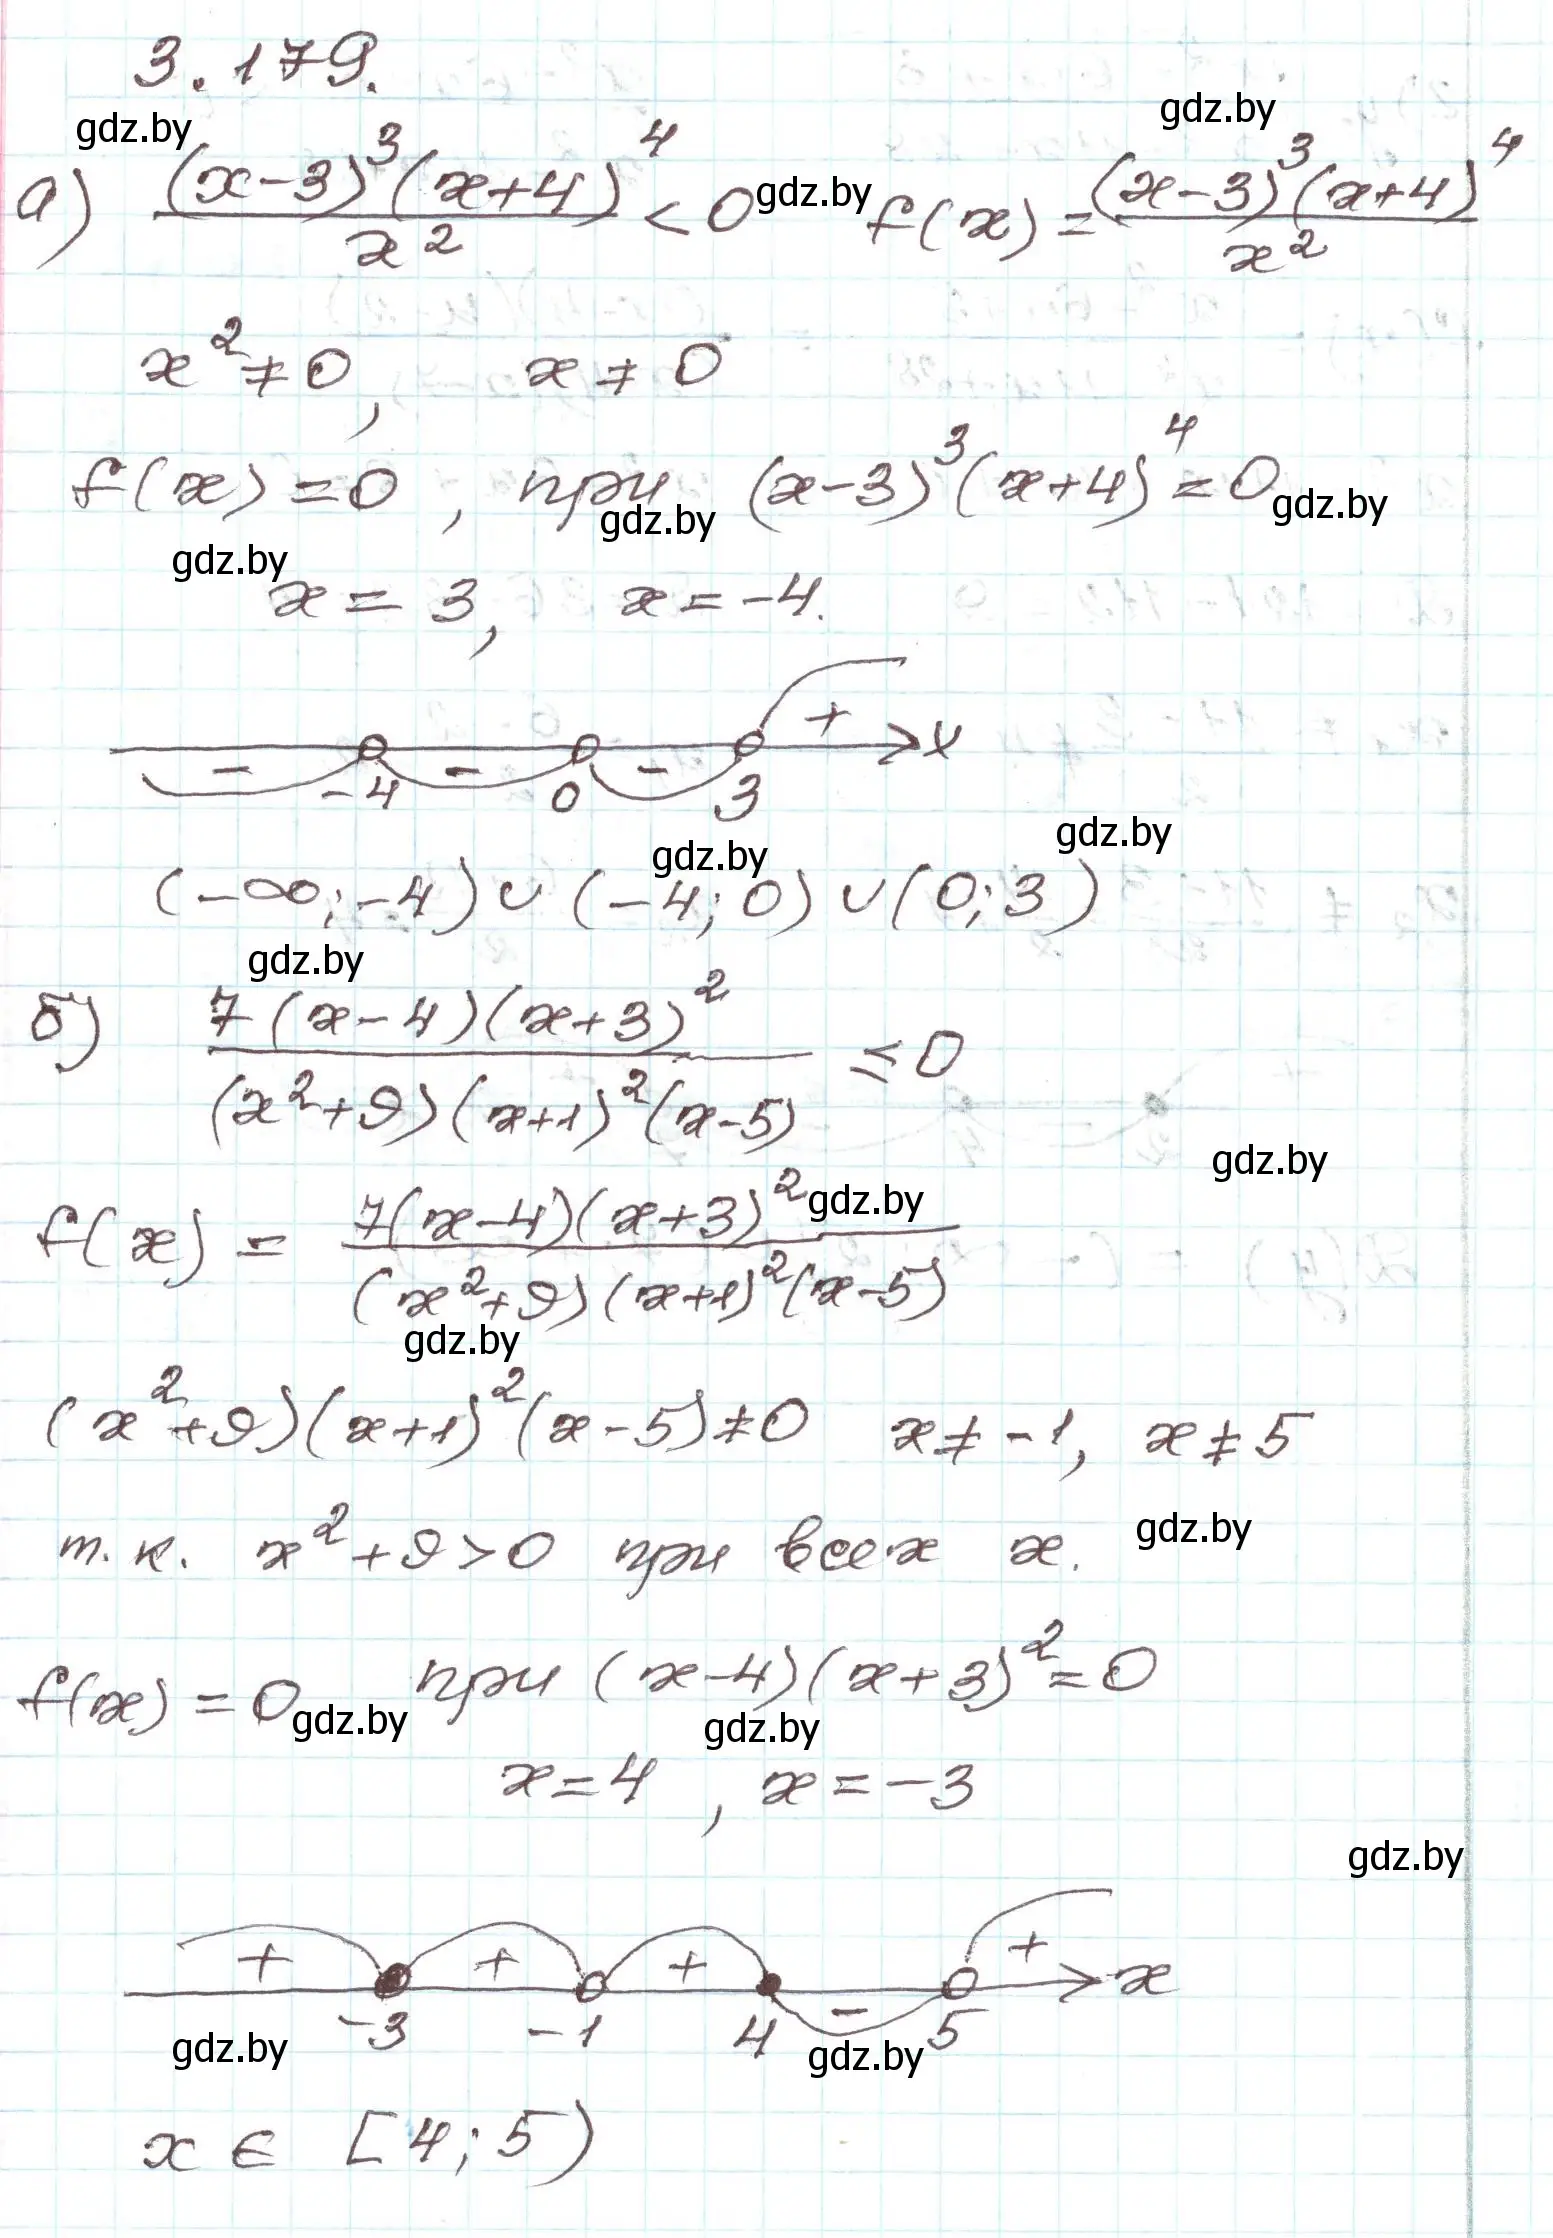 3.179.
gdz.by gdz.by
а) (x-3)³(x+4)⁴ / x² < 0 gdz.by f(x) = (x-3)³(x+4)⁴ / x²
x² ≠ 0, x ≠ 0
f(x) = 0, при (x-3)³(x+4)⁴ = 0
gdz.by gdz.by
gdz.by
x = 3, x = -4.
+ x
- -4 - 0 - 3
gdz.by gdz.by
(-∞; -4) ∪ (-4; 0) ∪ (0; 3)
gdz.by
б) 7(x-4)(x+3)² / (x²+9)(x+1)²(x-5) ≤ 0
gdz.by
f(x) = 7(x-4)(x+3)² / (x²+9)(x+1)²(x-5)
gdz.by
gdz.by
(x²+9)(x+1)²(x-5) ≠ 0 x ≠ -1, x ≠ 5
т.к. x²+9 > 0 при всех x.
gdz.by
f(x) = 0 при (x-4)(x+3)² = 0
gdz.by gdz.by
x = 4, x = -3
gdz.by
+ + + - + x
-3 -1 4 5
gdz.by gdz.by
x ∈ [4; 5)